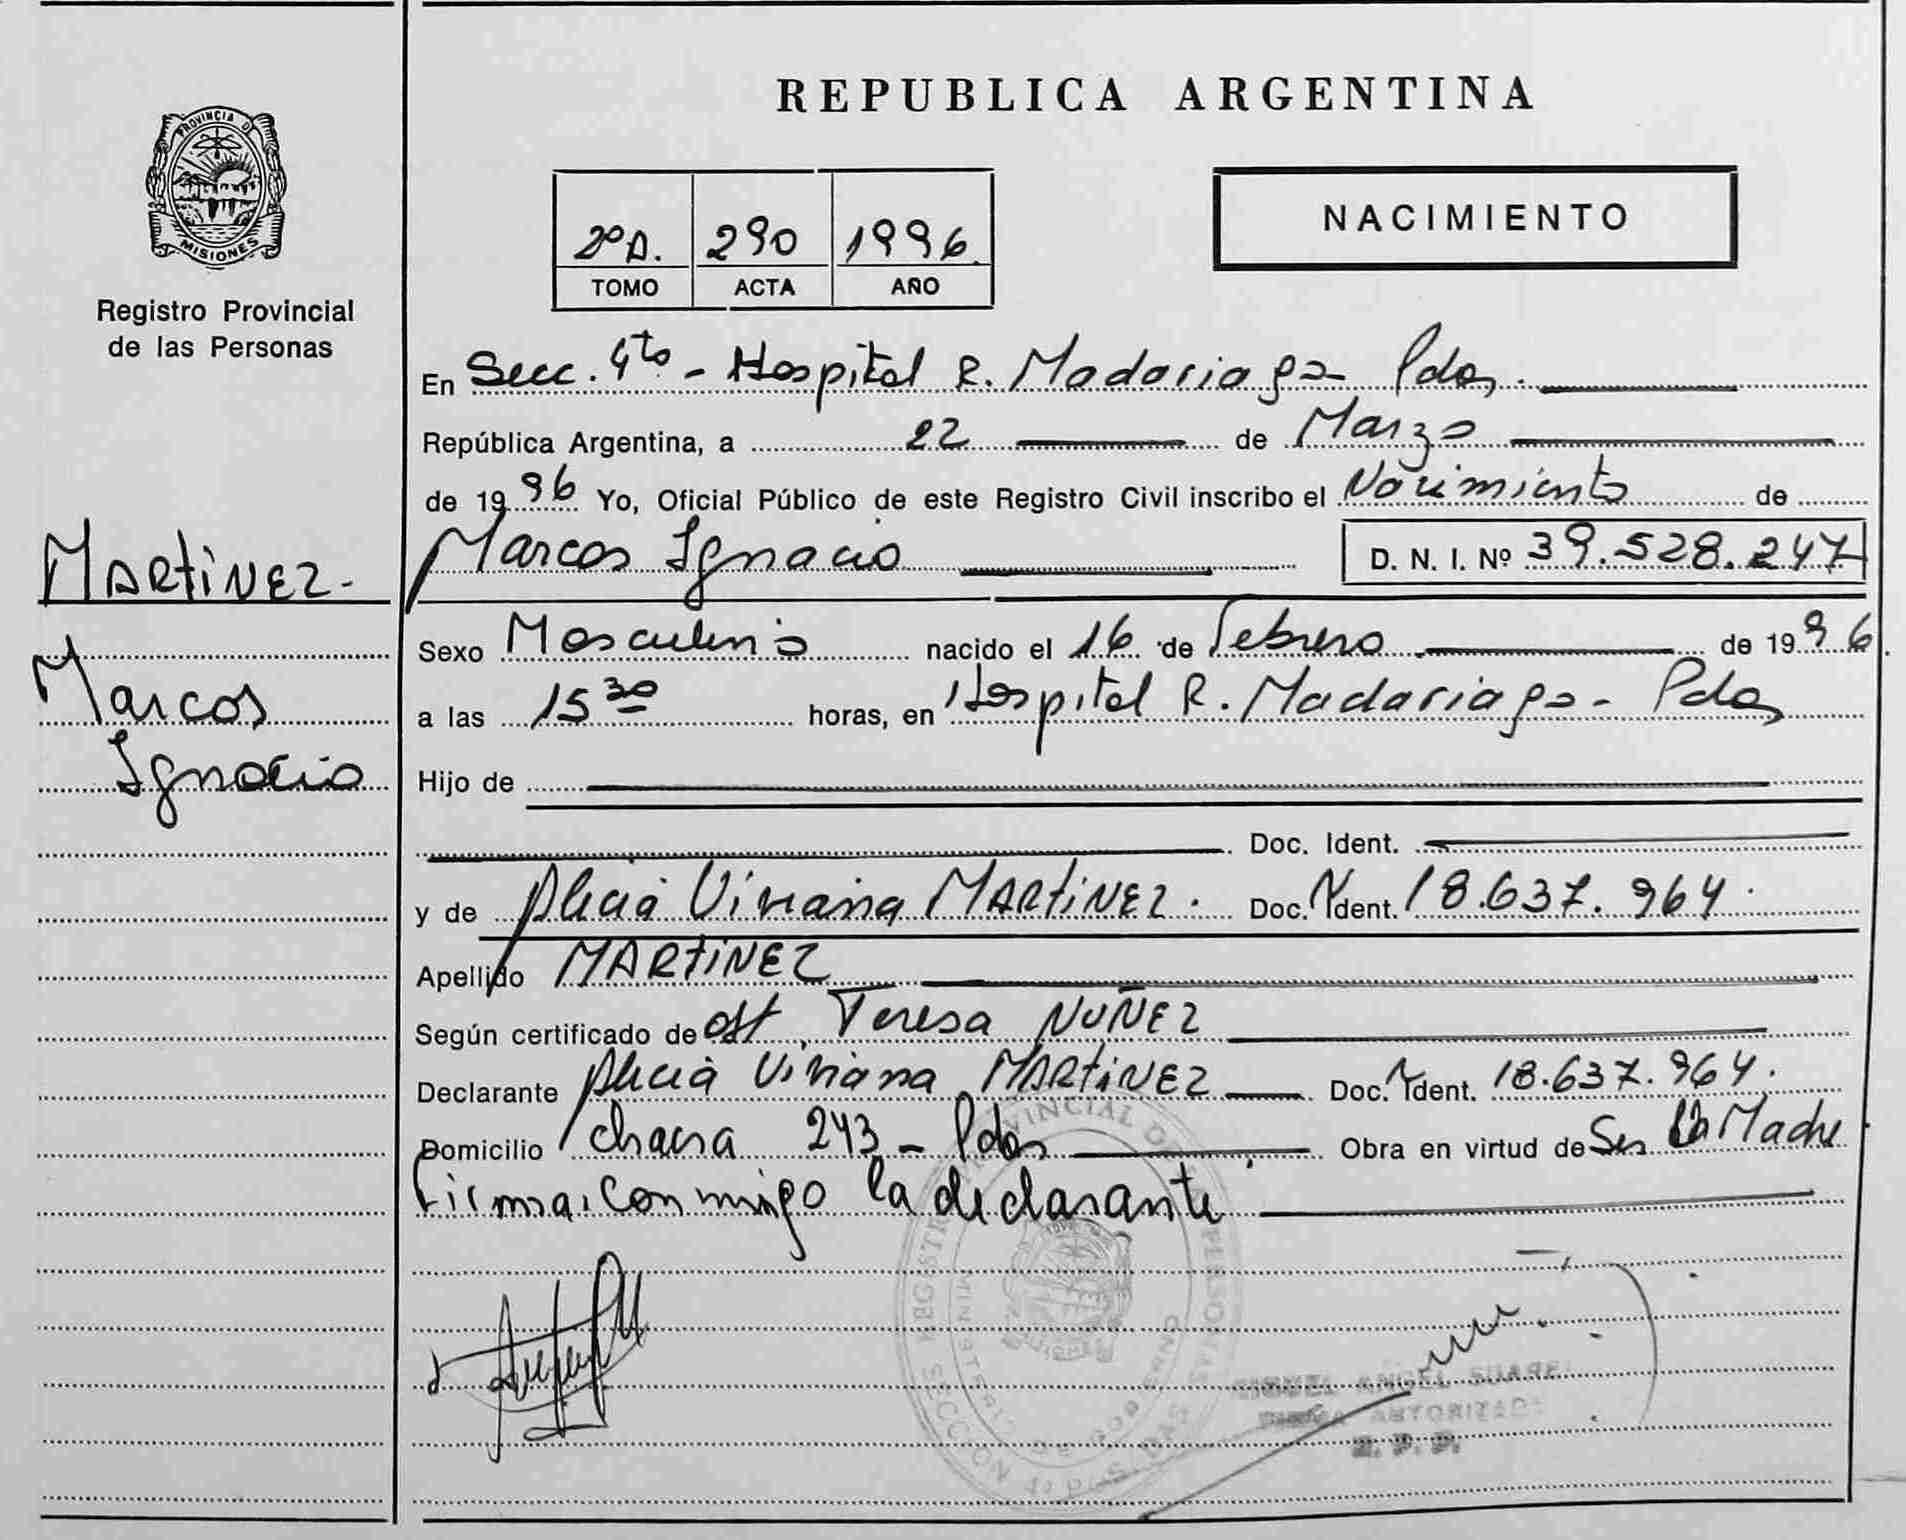 REPUBLICA ARGENTINA
PROVINCIA D MISIONES
Registro Provincial
de las Personas
NACIMIENTO
2º A. 290 1996.
TOMO ACTA AÑO
En Secc. 4ta - Hospital R. Madariaga - Pdas.
República Argentina, a 22 de Marzo
de 1996 Yo, Oficial Público de este Registro Civil inscribo el Nacimiento de
Marcos Ignacio D. N. I. Nº 39.528.247
MARTINEZ-
Marcos
Ignacio
Sexo Masculino nacido el 16 de Febrero de 1996.
a las 15 30 horas, en Hospital R. Madariaga - Pdas
Hijo de
Doc. Ident.
y de Alicia Viviana MARTINEZ. Doc. Ident. 18.637.964.
Apellido MARTINEZ
Según certificado de Teresa NUÑEZ
Declarante Alicia Viviana MARTINEZ Doc. Ident. 18.637.964.
Domicilio chacra 243 - Pdas Obra en virtud de Ser La Madre
Firma conmigo la declarante
MIGUEL ANGEL SUAREZ
FIRMA AUTORIZADA
R. P. P.